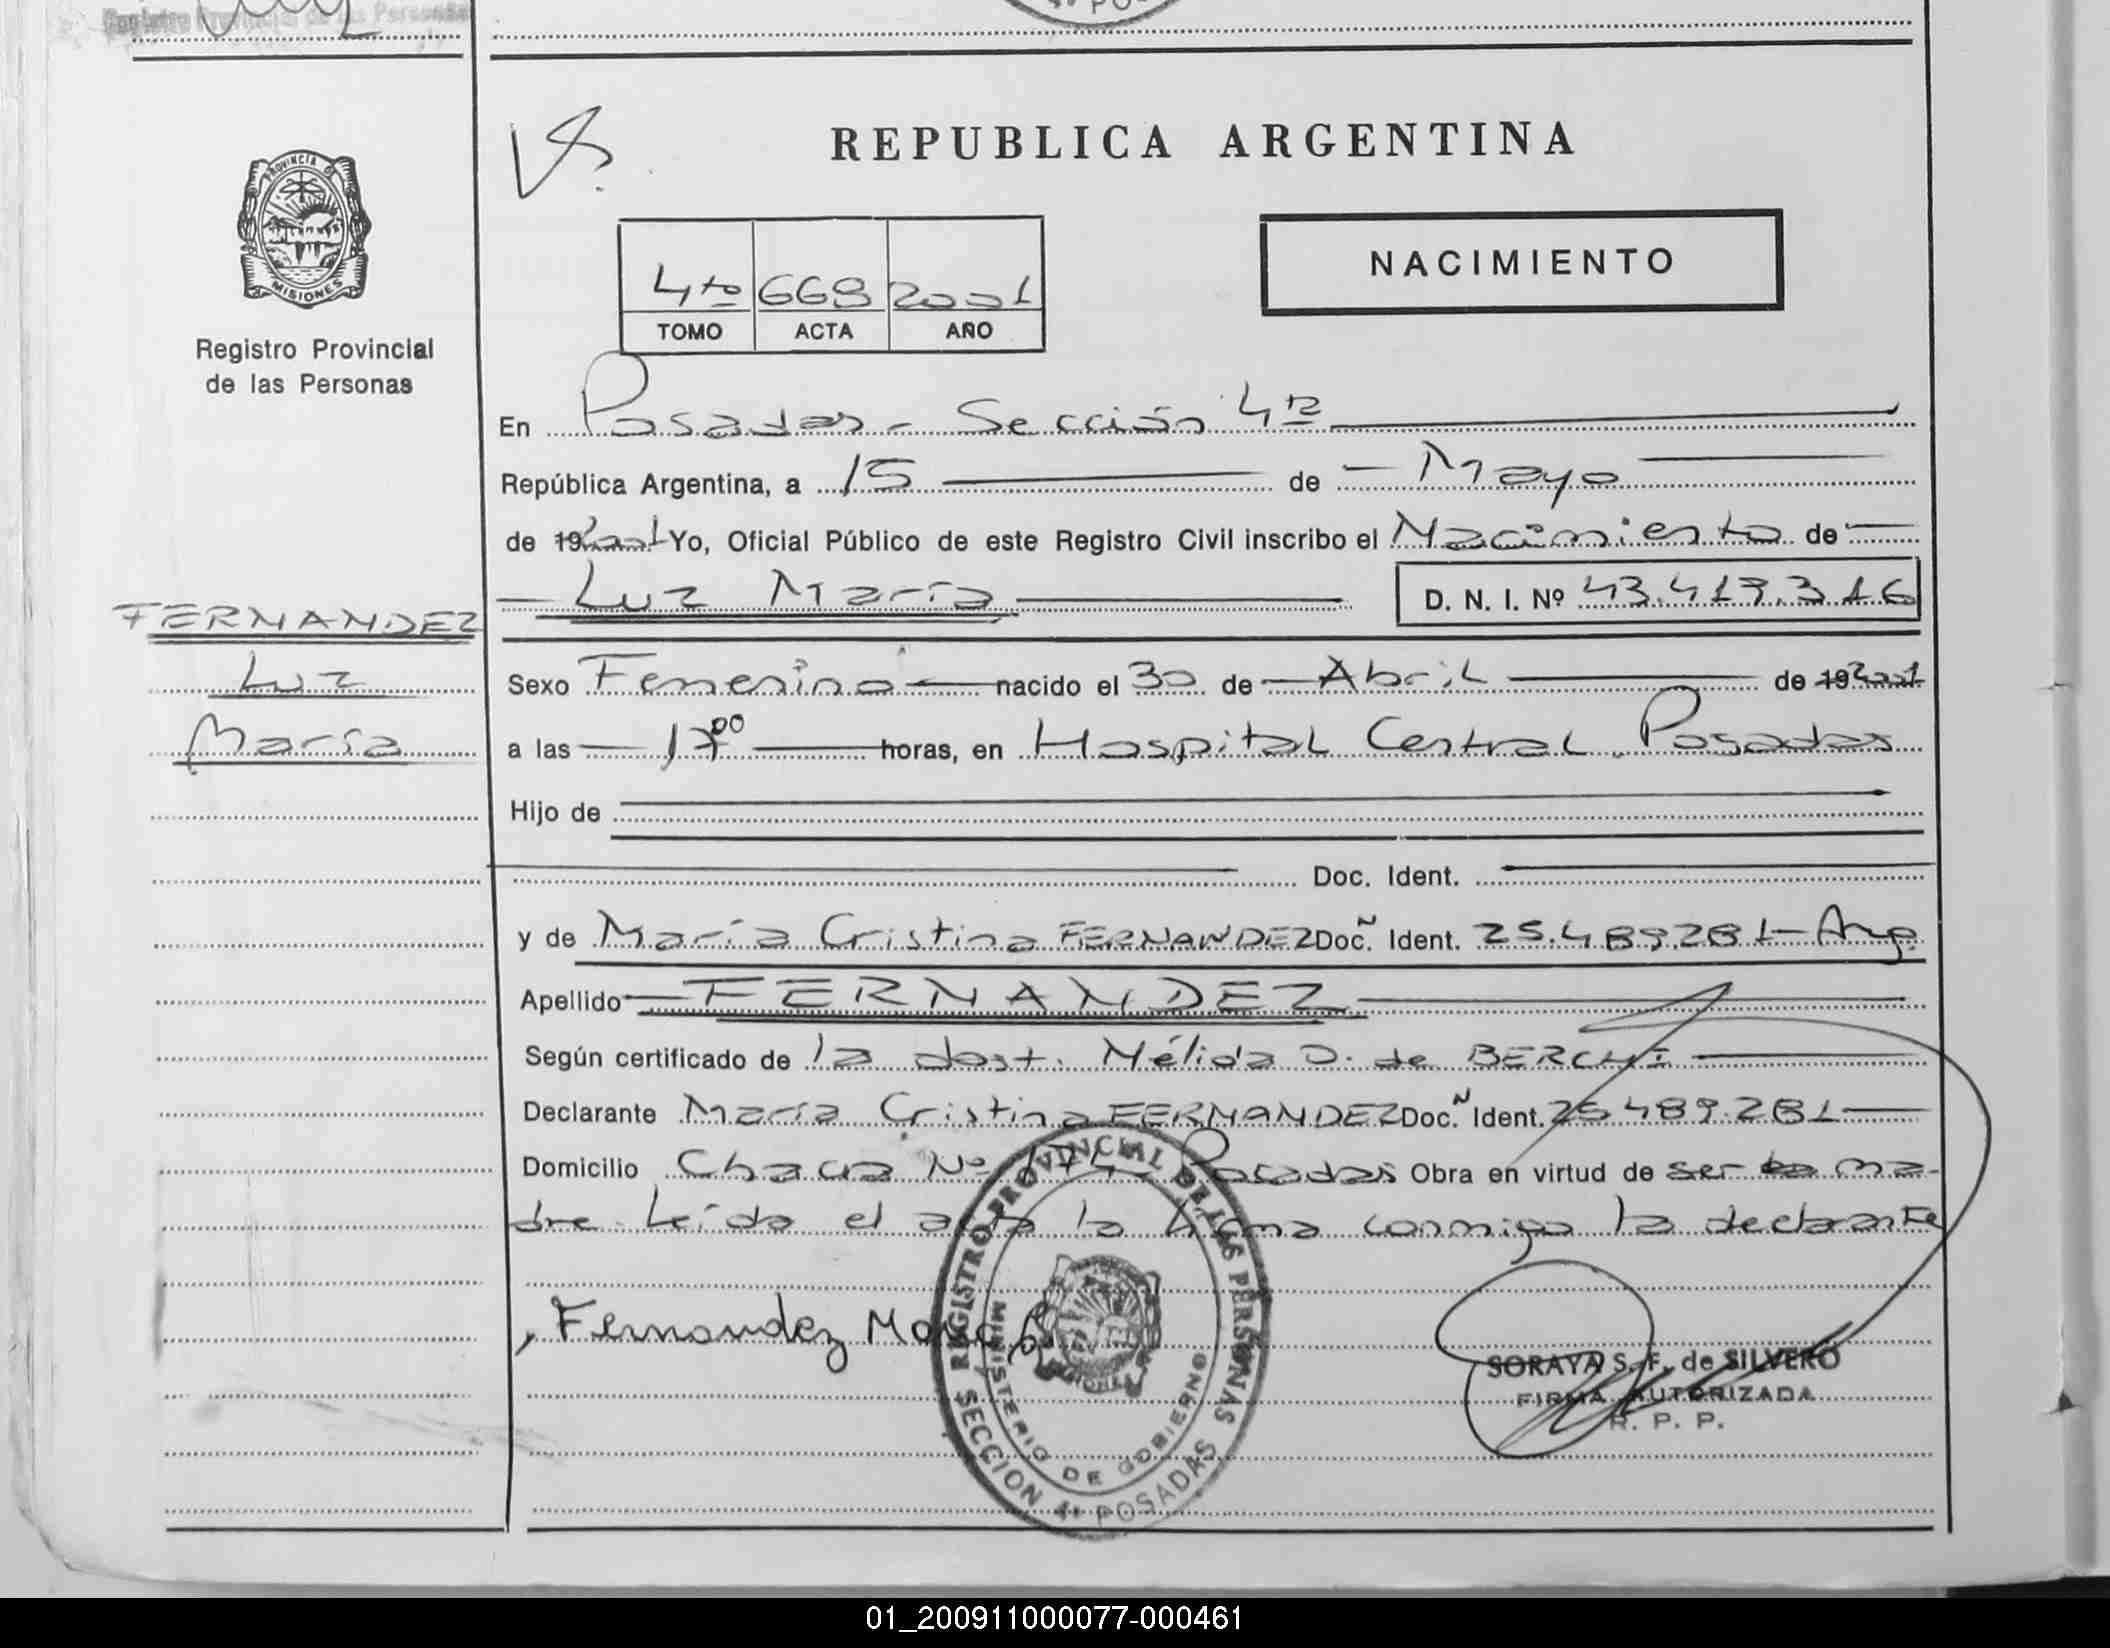 Registro Provincial de las Personas
PROVINCIA DE
MISIONES
Registro Provincial
de las Personas
FERNANDEZ
Luz
María
REPUBLICA ARGENTINA
NACIMIENTO
4to 669 2001
TOMO ACTA AÑO
En Posadas - Sección 4ta
República Argentina, a 15 de Mayo
de 19 2001 Yo, Oficial Público de este Registro Civil inscribo el Nacimiento de
Luz María D. N. I. Nº 43.417.316
Sexo Femenino nacido el 30 de Abril de 19 2001
a las 17 00 horas, en Hospital Central Posadas
Hijo de
Doc. Ident.
y de María Cristina FERNANDEZ Doc. Ident. 25.489.281 - Arg.
Apellido FERNANDEZ
Según certificado de la obst. Nélida D. de BERCHI
Declarante María Cristina FERNANDEZ Doc. Ident. 25.489.281
Domicilio Chacra Nº 174 - Posadas Obra en virtud de ser la ma-
dre. Leída el acta la firma conmigo la declarante
Fernandez María C
REGISTRO PROVINCIAL DE LAS PERSONAS
MINISTERIO DE GOBIERNO
SECCION 4ª POSADAS
SORAYA S. F. de SILVERO
FIRMA AUTORIZADA
R. P. P.
01_200911000077-000461